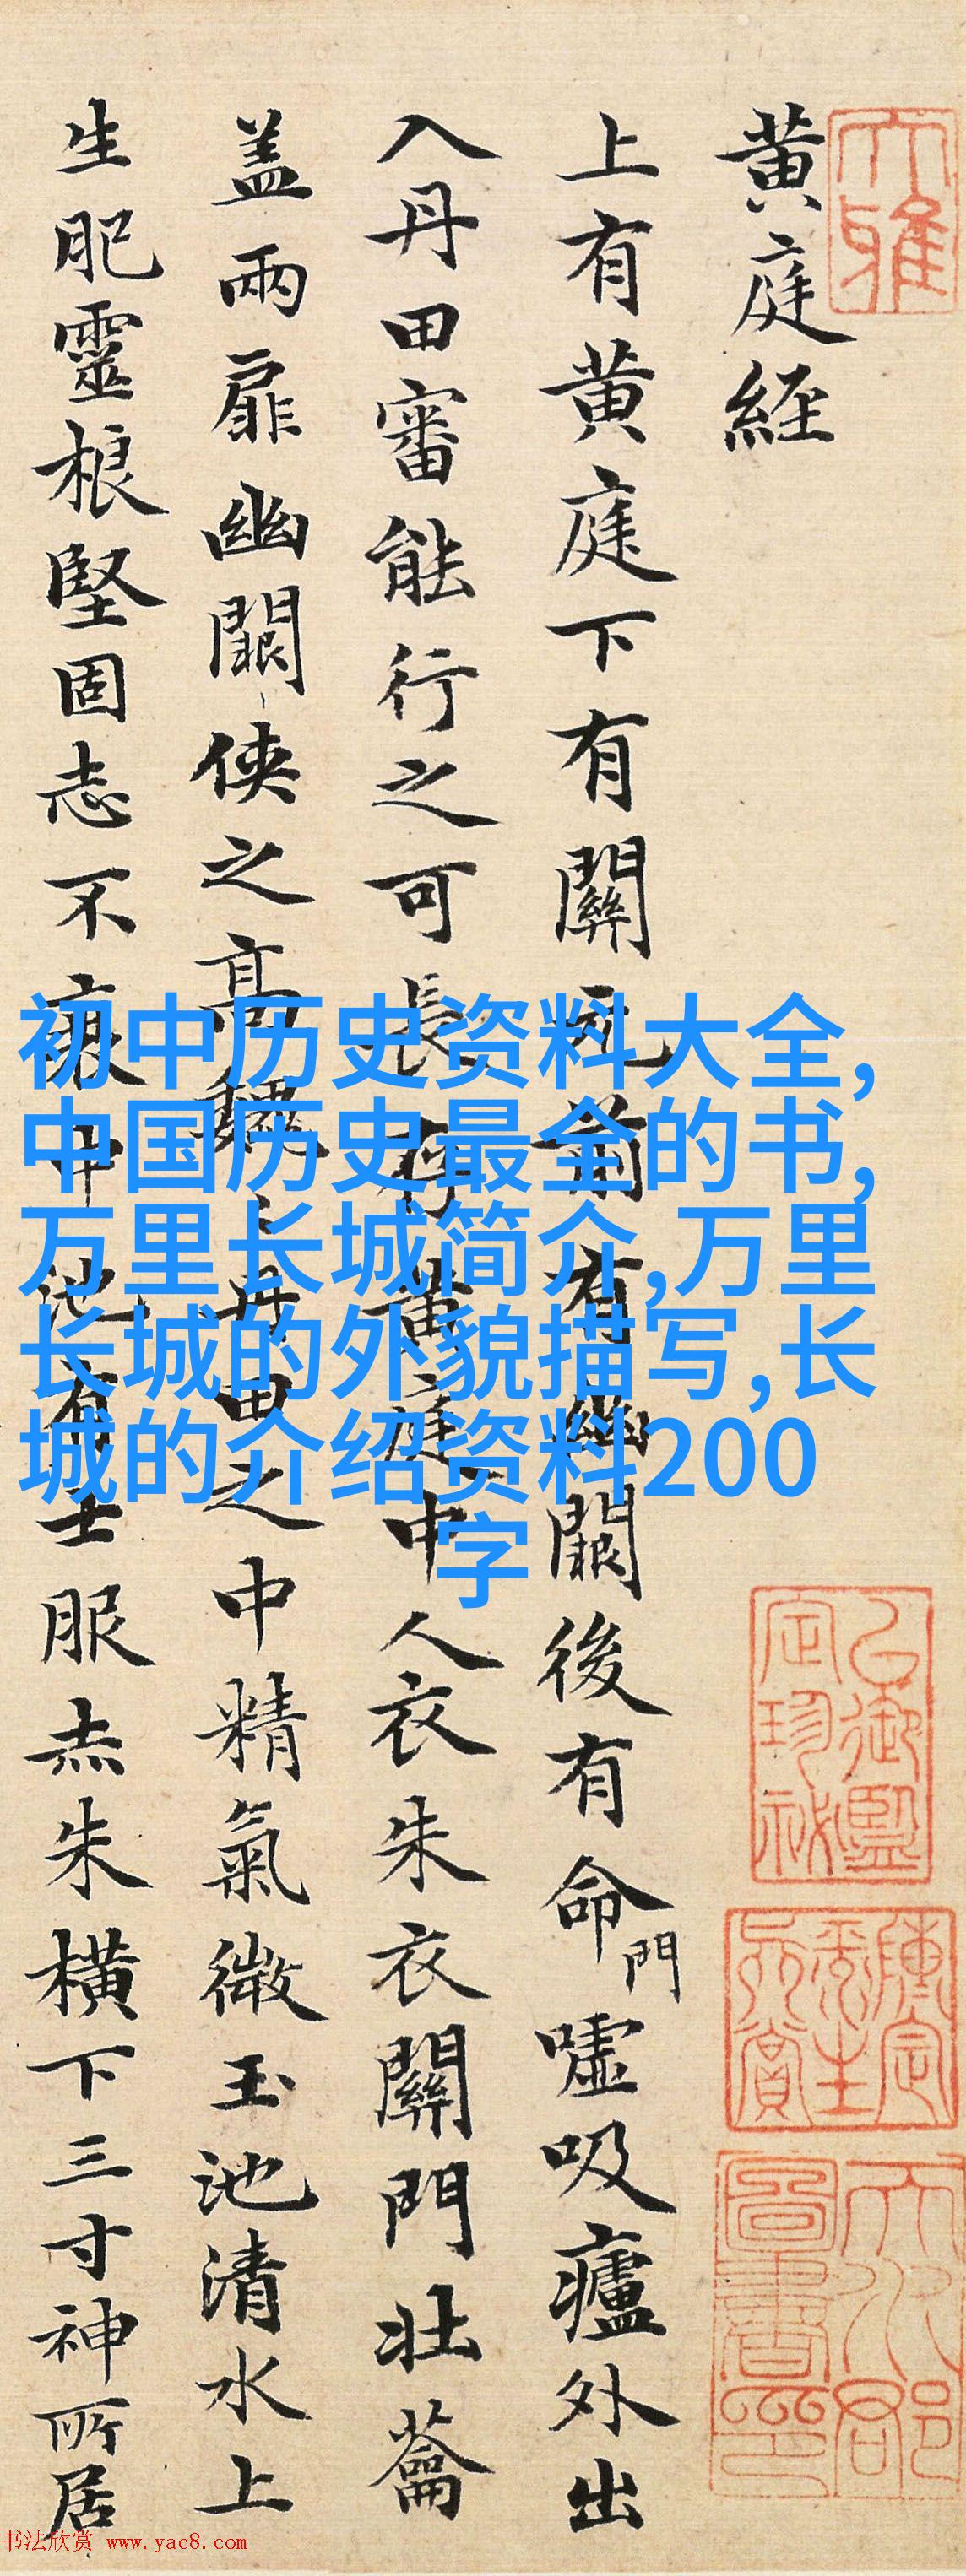 大雅
黄庭経
上有黄庭下有關元前有幽闕後有命門嘘吸廬外出
入丹田審能行之可長存黄庭中人衣朱衣關門壮蘥
盖兩扉幽闕侠之髙魏々丹田之中精氣微玉池清水上
生肥靈根堅固志不衰中池有士服赤朱横下三寸神所居
初中历史资料大全,
中国历史最全的书,
万里长城简介,万里
长城的外貌描写,长
城的介绍资料200
字
书法欣赏 www.yac8.com